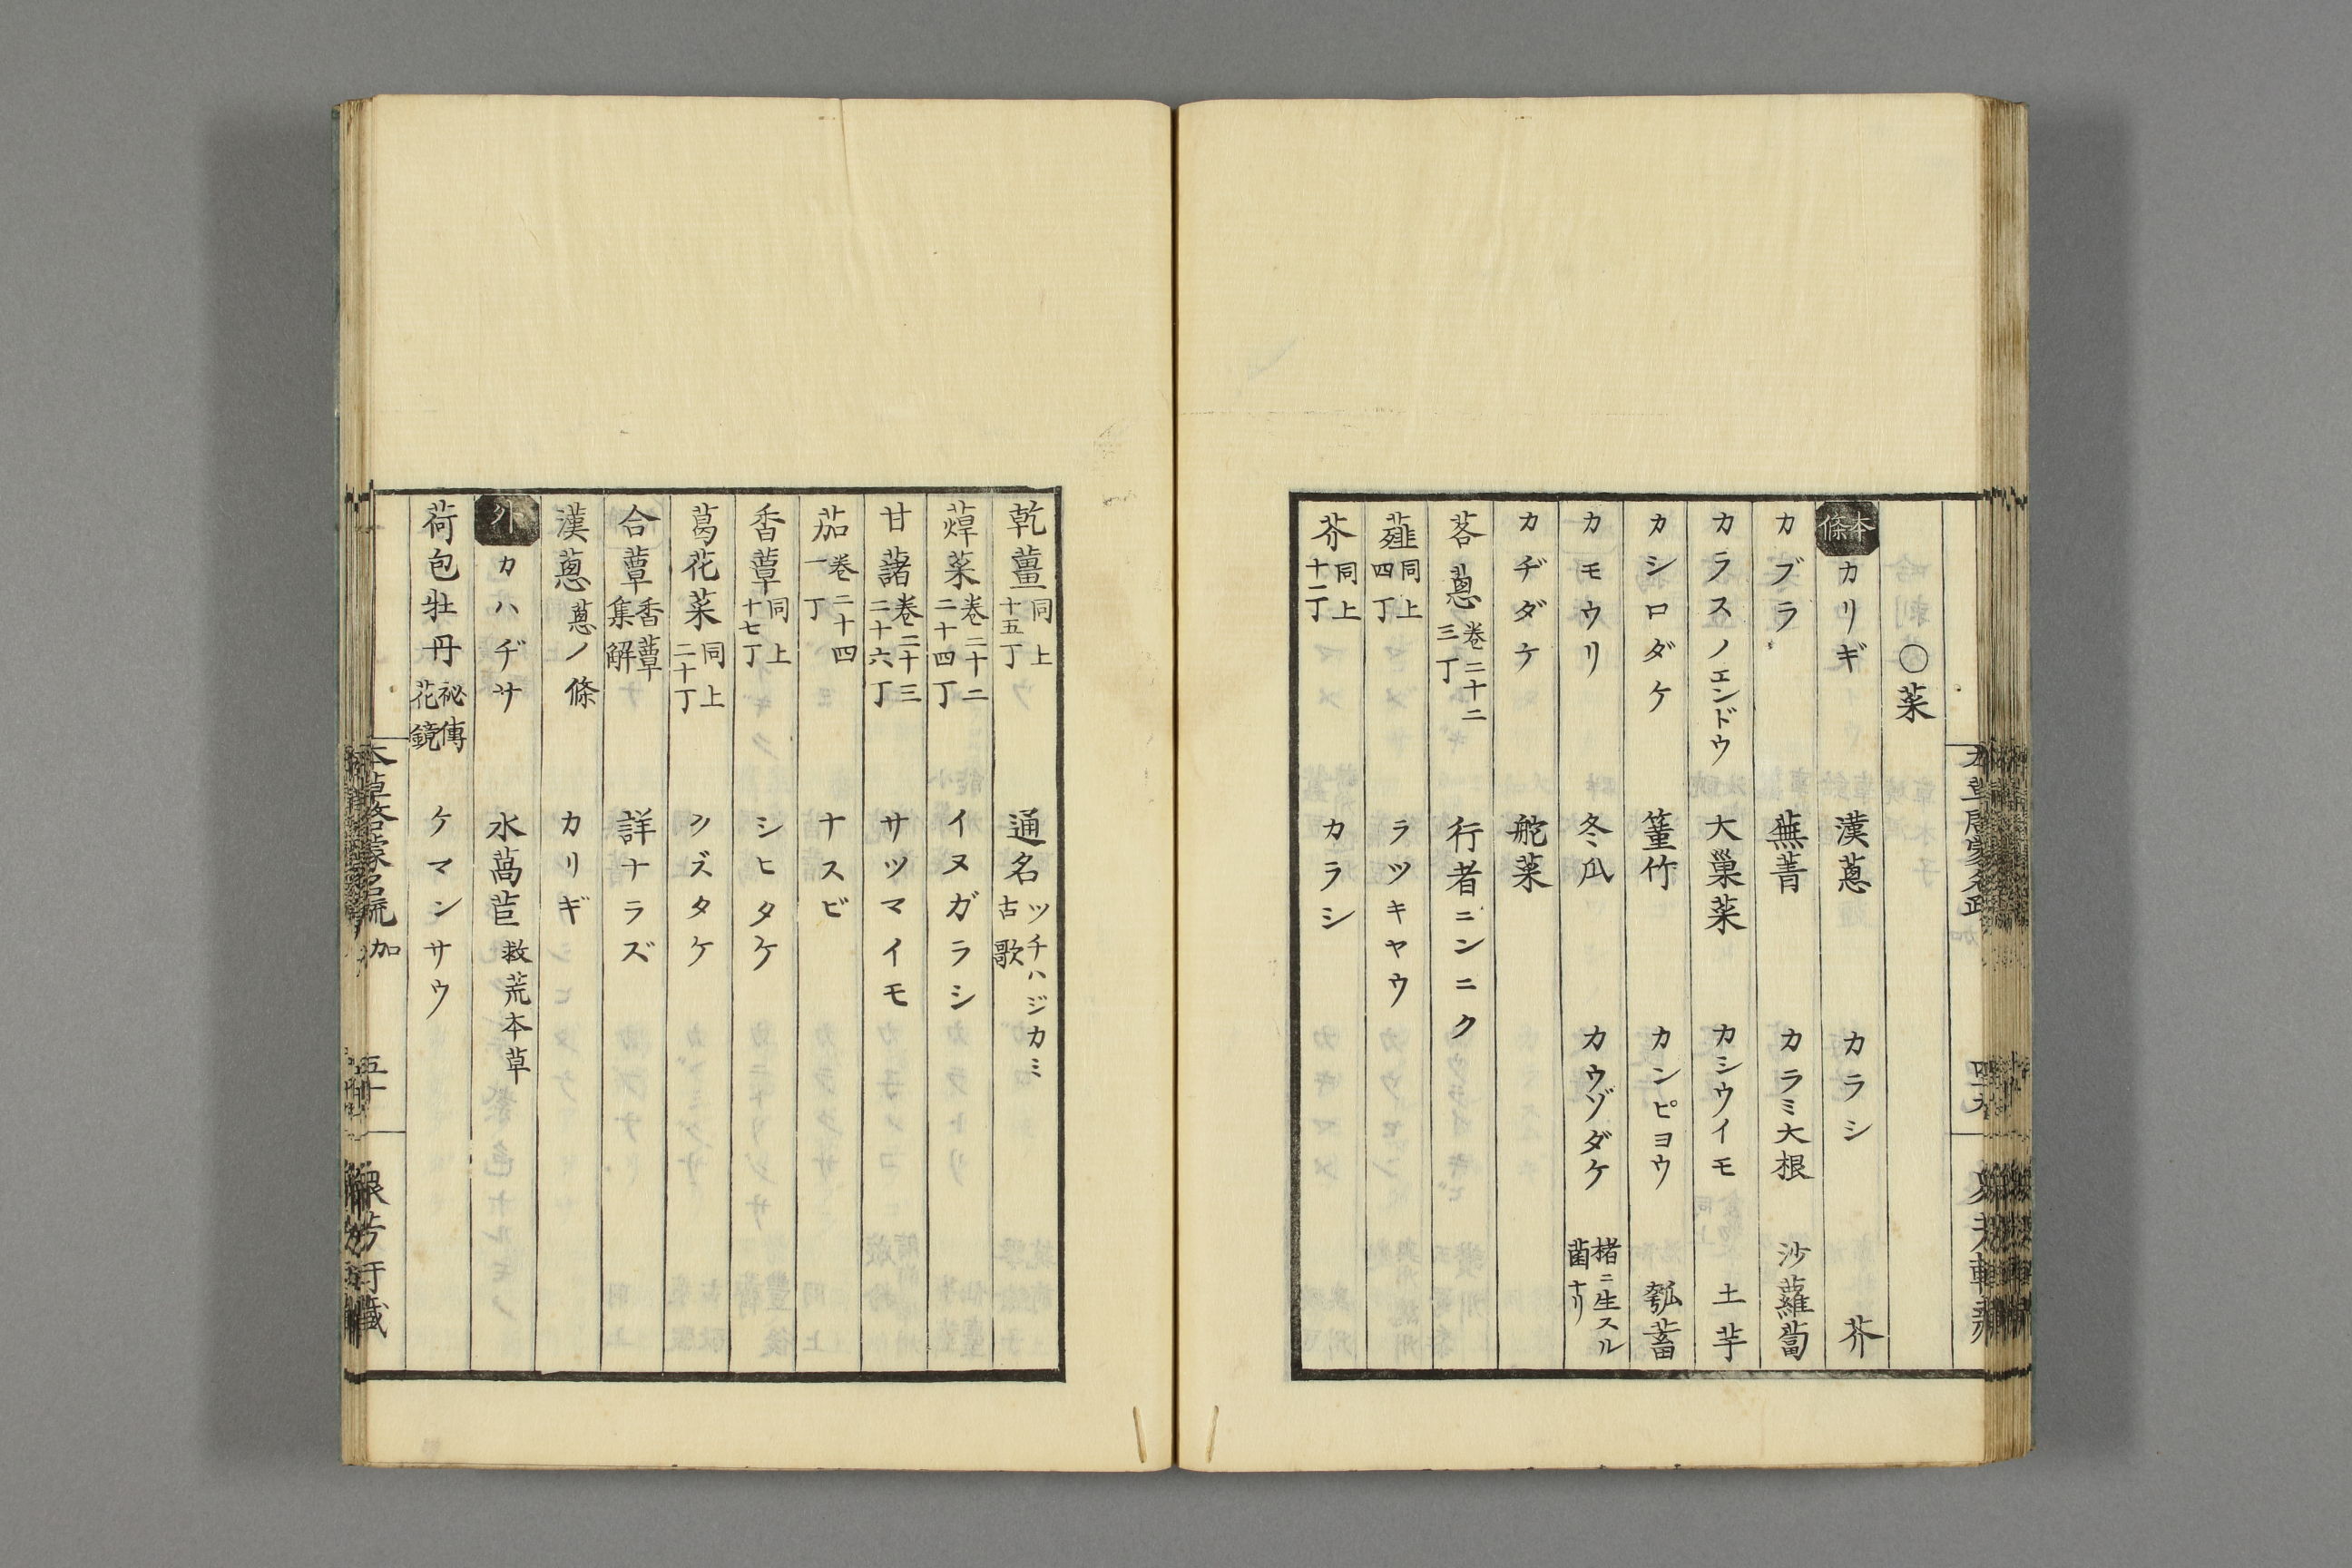 〇菜
本條 カリギ 漢蔥 カラシ 芥
カブラ 蕪菁 カラミ大根 沙蘿蔔
カラスノエンドウ 大巢菜 カシウイモ 土芋
カシロダケ 篁竹 カンピヨウ 瓠蓄
カモウリ 冬瓜 カウゾダケ 楮ニ生スル菌ナリ
カヂダケ 舵菜
茖蔥 卷二十二三丁 行者ニンニク
薤 同上四丁 ラツキヤウ
芥 同上十二丁 カラシ
乾薑 同上十五丁 通名 ツチハジカミ古歌
蔊菜 卷二十二二十四丁 イヌガラシ
甘藷 卷二十三二十六丁 サツマイモ
茄 卷二十四一丁 ナスビ
香蕈 同上十七丁 シヒタケ
葛花菜 同上二十丁 クズタケ
合蕈 香蕈集解 詳ナラズ
漢蔥 蔥ノ條 カリギ
外 カハヂサ 水萵苣 救荒本草
荷包牡丹 祕傳花鏡 ケマンサウ
本草啓蒙名疏 加 五十